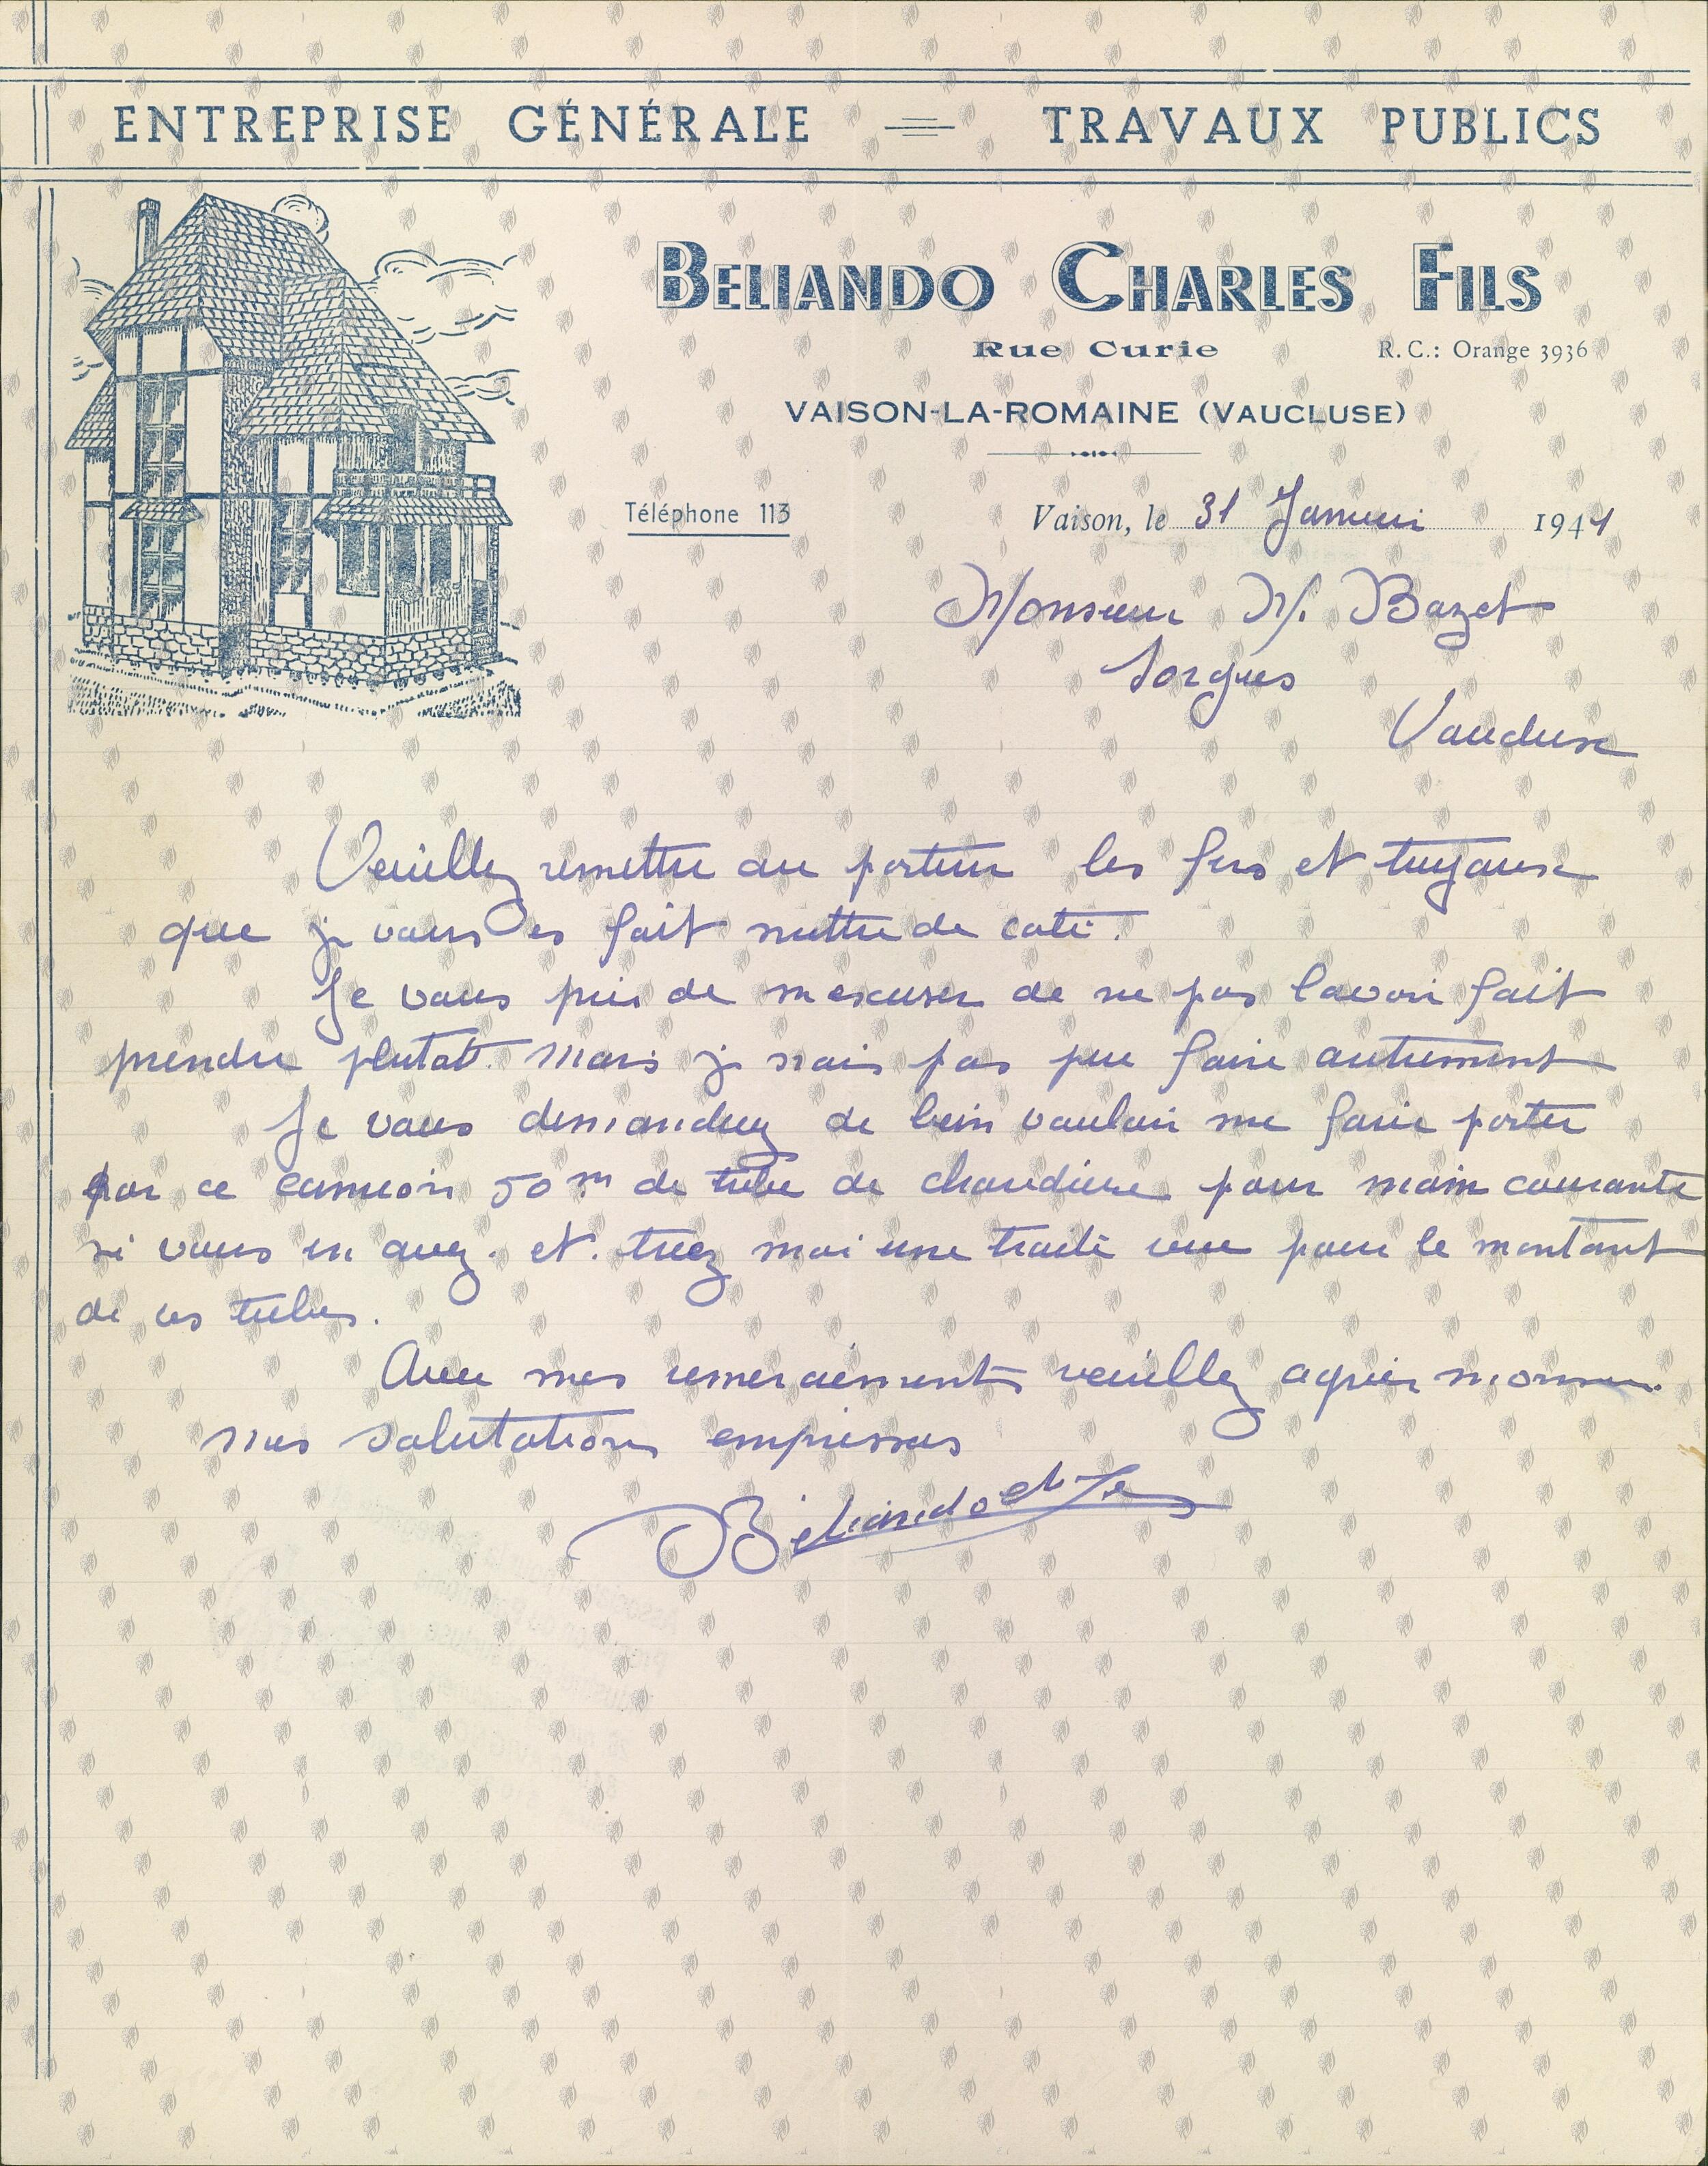 ENTREPRISE GÉNÉRALE — TRAVAUX PUBLICS
BELIANDO CHARLES FILS
Rue Curie R. C. : Orange 3936
VAISON-LA-ROMAINE (VAUCLUSE)
Téléphone 113 Vaison, le 31 Janvier 1941
Monsieur M. Bazet
Sorgues
Vaucluse
Veuillez remettre au porteur les fers et tuyaux
que je vous es fait mettre de coté.
Je vous prie de mexcuser de ne pas lavoir fait
prendre plutot. Mais je nais pas pu faire autrement
Je vous demandez de bien vouloir me faire porter
par ce camion 50 m de tube de chaudiere pour main courante
si vous en avez. et. tirez moi une traite pour le montant
de ces tubes.
Avec mes remerciements veuillez agréer monsieur
mes salutations empressées
Béliando